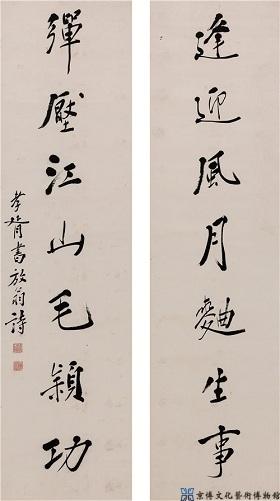 逢迎風月麴生事
彈壓江山毛穎功
孝胥書放翁詩
京博文化藝術博物館